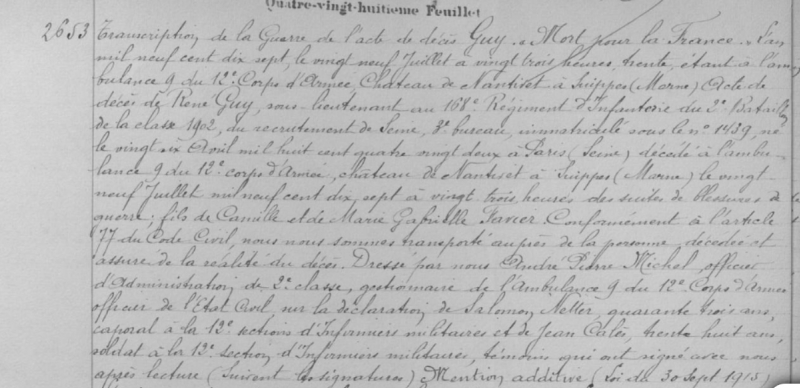 Quatre-vingt-huitième Feuillet
2653 Transcription de la Guerre de l'acte de décès Guy. "Mort pour la France". L'an
mil neuf cent dix sept, le vingt neuf Juillet à vingt trois heures, trente, étant à l'am
bulance 9 du 12e Corps d'Armée, Château de Nantivet à Suippes (Marne) Acte de
décès de René Guy, sous-lieutenant au 168e Régiment d'Infanterie du 2e Bataillon
de la classe 1902, du recrutement de Seine, 3e bureau, immatriculé sous le no 1439, né
le vingt six Avril mil huit cent quatre vingt deux à Paris (Seine) décédé à l'ambu-
lance 9 du 12e corps d'Armée, château de Nantivet à Suippes (Marne) le vingt-
neuf Juillet mil neuf cent dix, sept à vingt trois heures des suites de blessures de
guerre; fils de Camille et de Marie Gabrielle Favier. Conformément à l'article
77 du Code Civil, nous nous sommes transporté auprès de la personne, décédée et
assuré de la réalité du décès. Dressé par nous André Pierre Michel, officier
d'Administration de 2e classe, gestionnaire de l'Ambulance 9 du 12e Corps d'Armée
officier de l'Etat Civil, sur la déclaration de Salomon Netter, quarante trois ans,
caporal à la 12e sections d'Infirmiers militaires et de Jean Calès, trente huit ans,
soldat à la 12e section d'Infirmiers militaires, témoins qui ont signé avec nous
après lecture (Suivent les signatures) Mention additive (Loi du 30 Sept 1915)